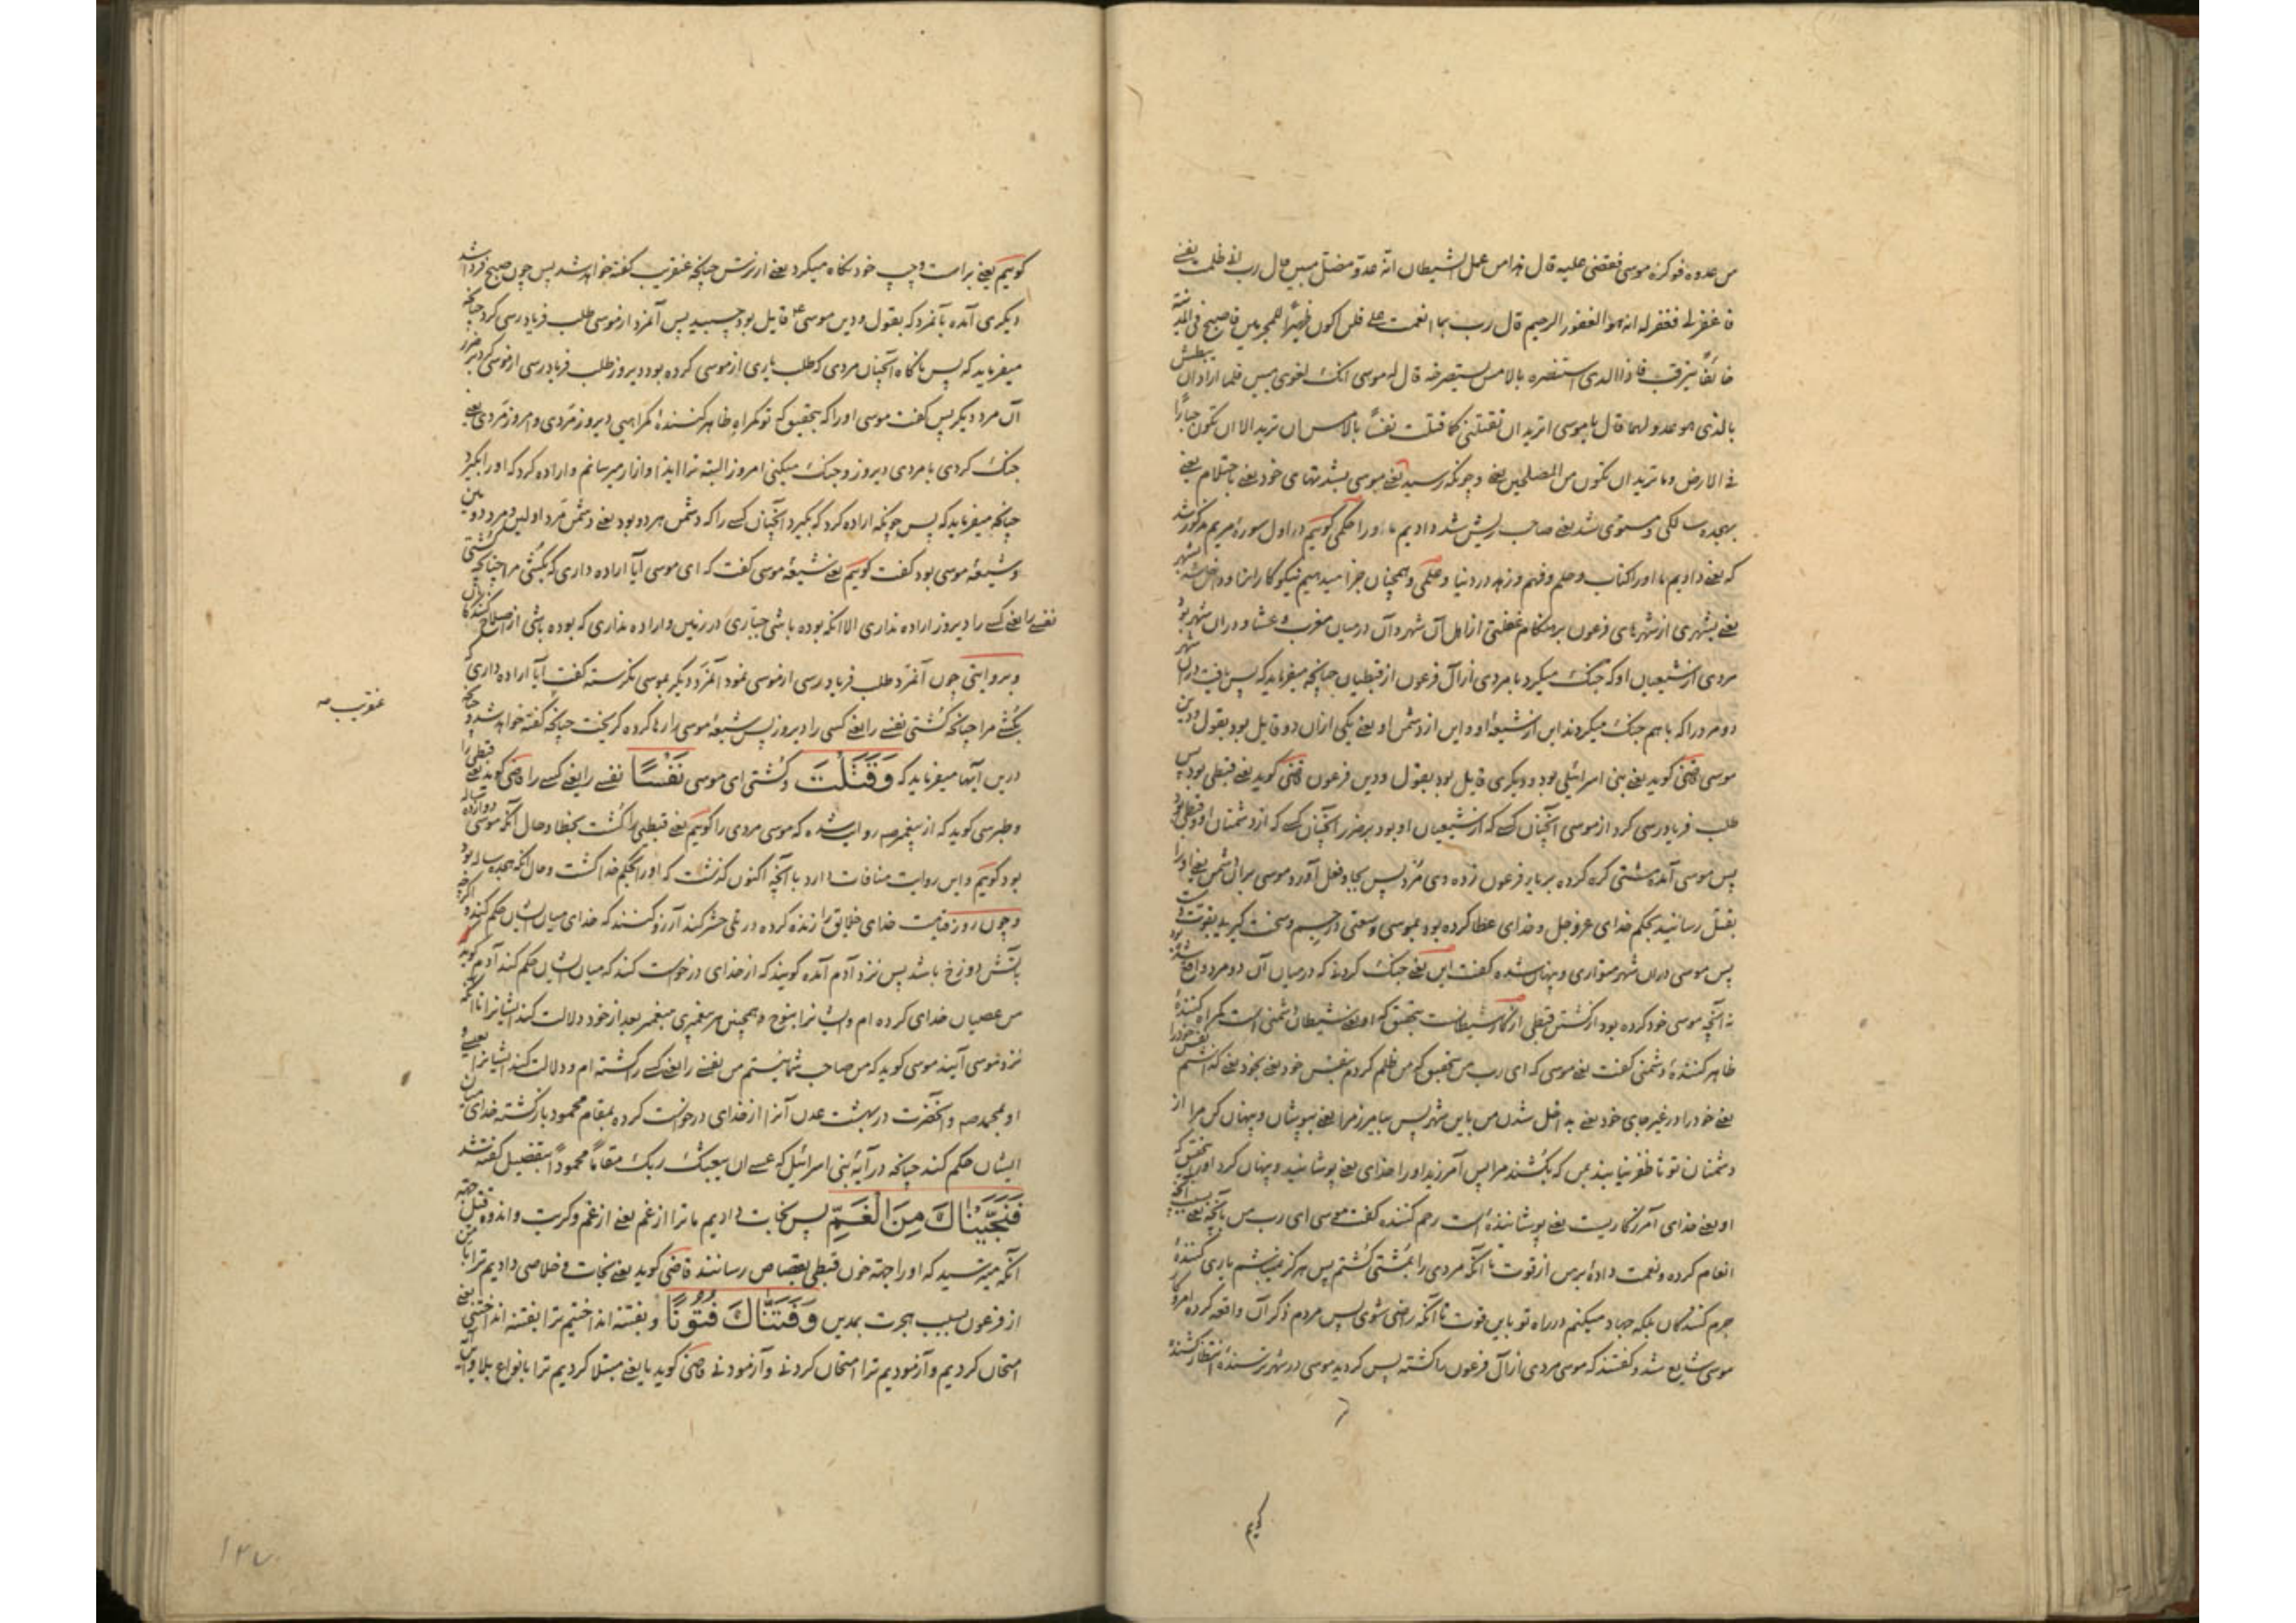 من عدوه فوکزه موسی فقضی علیه قال هذا من عمل الشیطان انه عدو مضل مبین قال رب انی ظلمت نفسی
فاغفر لی فغفر له انه هو الغفور الرحیم قال رب بما انعمت علی فلن اکون ظهیرا للمجرمین فاصبح فی المدینة
خائفا یترقب فاذا الذی استنصره بالامس یستصرخه قال له موسی انک لغوی مبین فلما اراد ان یبطش
بالذی هو عدو لهما قال یا موسی اترید ان تقتلنی کما قتلت نفسا بالامس ان ترید الا ان تکون جبارا
فی الارض و ما ترید ان تکون من المصلحین یعنی و چونکه رسید یعنی موسی بشدتهای خود یعنی باحتلام یعنی
بهجده سالکی و مستوی شد یعنی صاحب ریش شد دادیم ما او را حکمی کوییم در اول سوره مریم مذکور شد
که یعنی دادیم ما او را کتاب و حلم و فهم و زهد در دنیا و علمی و همچنان جزا میدهیم نیکوکارانرا و داخل شد بشهر
یعنی بشهری از شهرهای فرعون بر هنکام غفلتی از اهل آن شهر و آن درمیان مغرب و عشا و در آن شهر بود
مردی از شیعیان او که جنک میکرد با مردی از آل فرعون از قبطیان چنانچه میفرماید که پس یافت در آن شهر
دو مرد را که با هم جنک میکردند این از شیعه او و این از دشمن او یعنی یکی از آن دو قایل بود بقول و دین
موسی قاضی کوید یعنی بنی اسرائیلی بود و دیکری قایل بود بقول و دین فرعون قاضی کوید یعنی قبطی بود پس
طلب فریادرسی کرد از موسی آنچنان کسی که از شیعیان او بود بر ضرر آنچنان کسی که از دشمنان او و قبطی بود
پس موسی آمده مشتی کره کرده بر نابر فرعون زده وی مرد پس بجا و فعل آورد موسی بر آن دشمن یعنی او را
بقتل رسانید بحکم خدای عزوجل و خدای عطا کرده بود بموسی وسعتی در جسم و سخت کیری بقوت
پس موسی در آن شهر متواری و پنهان شده کفت این یعنی جنک کردنی که درمیان آن دو مرد واقع شده بود
نه آنچه موسی خود کرده بود از کشتن قبطی از کار شیطانست بتحقیق که او یعنی شیطان دشمنی است کمراه کننده
ظاهر کننده دشمنی کفت یعنی موسی که ای رب من بتحقیق که من ظلم کردم بنفس خود یعنی بخود یعنی که نفس خود را
یعنی خود را در غیر جای خود یعنی بداخل شدن من باین شهر پس بیامرز مرا یعنی بپوشان و پنهان کن مرا از
دشمنان تو تا ظفر نیابند بمن که بکشند مرا پس آمرزید او را خدای یعنی پوشانید و پنهان کرد او را بتحقیق که
او یعنی خدای آمرزکاریست یعنی پوشاننده است رحم کننده کفت موسی ای رب من بآنچه یعنی بسبب آنچه
انعام کرده و نعمت داده بر من از قوت تا آنکه مردی را بمشتی کشتم پس هرکز نمیباشم یاری کننده
جرم کنندکان بلکه جهاد میکنم در راه تو باین قوت تا آنکه راضی شوی پس مردم ذکر آن واقعه کرده امر و کار
موسی شایع شد و کفتند که موسی مردی از آل فرعون را کشته پس کردید موسی در شهر ترسنده انتظار کشنده
کوییم
کوییم یعنی براست و چپ خود نکاه میکرد یعنی از ترس چنانچه عنقریب کفته خواهد شد پس چون صبح فردا شد
دیکری آمده بآنمرد که بقول و دین موسی ع قایل بود چسبید پس آنمرد از موسی طلب فریادرسی کرد چنانچه
میفرماید که پس ناکاه آنچنان مردی که طلب یاری از موسی کرده بود دیروز طلب فریادرسی از موسی کرد بر ضرر
آن مرد دیکر پس کفت موسی او را که بتحقیق که تو کمراه ظاهر کننده کمراهیی دیروز مردی و امروز مردی یعنی
جنک کردی با مردی دیروز و جنک میکنی امروز البته ترا ایذا و آزار میرسانم و اراده کرد که او را بکیرد
چنانچه میفرماید که پس چونکه اراده کرد که بکیرد آنچنان کسی را که دشمن هر دو بود یعنی دشمن مرد اولین و مرد دومین
و شیعه موسی بود کفت کوییم یعنی شیعه موسی کفت که ای موسی آیا اراده داری که بکشی مرا چنانکه کشتی
نفسی را یعنی کسی را دیروز اراده نداری الا آنکه بوده باشی جباری در زمین و اراده نداری که بوده باشی از اصلاح کنندکان
و بروایتی چون آنمرد طلب فریادرسی از موسی نمود آنمرد دیکر بموسی نکرسته کفت آیا اراده داری که
بکشی مرا چنانچه کشتی نفسی را یعنی کسی را دیروز پس شیعه موسی را رها کرده کریخت چنانچه کفته خواهد شد و چنانچه
درین آیها میفرماید که وَقَتَلْتَ و کشتی ای موسی نَفْسًا نفسی را یعنی کسی را قاضی کوید یعنی قبطی را
و طبرسی کوید که از پیغمبر صه روایت شده که موسی مردی را کوییم یعنی قبطی را کشت بخطا و حال آنکه موسی دوازده ساله
بود کوییم و این روایت منافات دارد با آنچه اکنون کذشت که او را بحکم خدا کشت و حال آنکه هجده ساله بود
و چون روز قیامت خدای خلایق را زنده کرده در تلی حشر کند آرزو کنند که خدای میان ایشان حکم کند و اکرچه
بآتش دوزخ باشد پس نزد آدم آمده کویند که از خدای درخواست کند که میان ایشان حکم کند آدم کوید
من عصیان خدای کرده ام و ایشانرا بنوح و همچنین هر پیغمبری بپیغمبر بعد از خود دلالت کند ایشانرا تا آنکه
نزد موسی آیند موسی کوید که من صاحب شما نیستم من نفسی را یعنی کسی را کشته ام و دلالت کند ایشانرا بعیسی و
او بمحمد صه و آنحضرت در بهشت عدن آنرا از خدای درخواست کرده بمقام محمود بازکشته خدای میان
ایشان حکم کند چنانچه در آیه بنی اسرائیل که عسی ان یبعثک ربک مقاما محمودا بتفصیل کفته شد
فَنَجَّيْنَاكَ مِنَ الْغَمِّ پس نجات دادیم ما ترا از غم یعنی از غم و کربت و اندوه قتل جهة
آنکه میترسید که او را جهة خون قبطی بقصاص رسانند قاضی کوید یعنی نجات و خلاصی دادیم ترا
از فرعون بسبب هجرت بمدین وَفَتَنَّاكَ فُتُونًا و بفتنه انداختیم ترا بفتنه انداختنی یعنی
امتحان کردیم و آزمودیم ترا امتحان کردنی و آزمودنی قاضی کوید یا یعنی مبتلا کردیم ترا بانواع بلا
عنقریب صه
۱۴۷